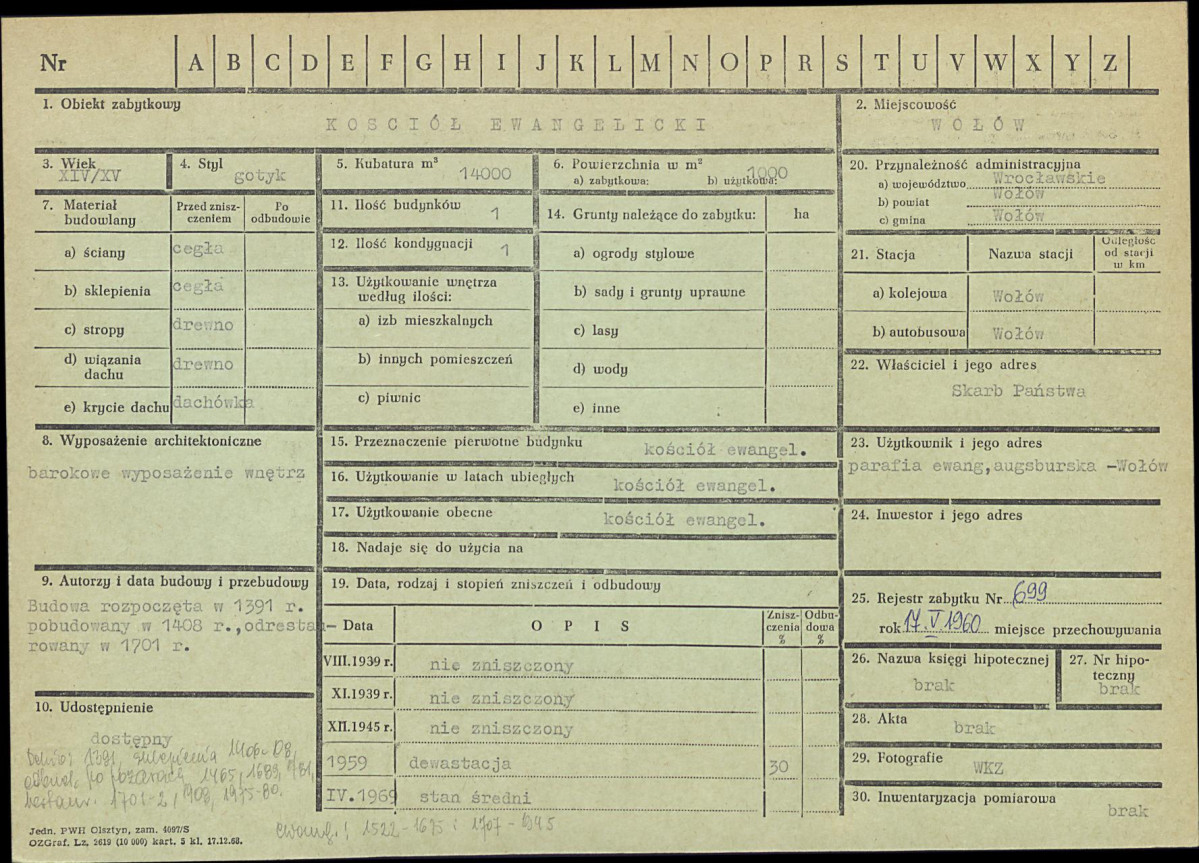 Nr A B C D E F G H I J K L M N O P R S T U V W X Y Z
1. Obiekt zabytkowy
KOSCIÓŁ EWANGELICKI
2. Miejscowość
WOŁÓW
3. Wiek
XIV/XV
4. Styl
gotyk
5. Kubatura m³
14000
6. Powierzchnia w m²
1000
a) zabytkowa: b) użytkowa:
20. Przynależność administracyjna
a) województwo Wrocławskie
b) powiat Wołów
c) gmina Wołów
7. Materiał budowlany
Przed zniszczeniem
Po odbudowie
a) ściany cegła
b) sklepienia cegła
c) stropy drewno
d) wiązania dachu drewno
e) krycie dachu dachówka
11. Ilość budynków 1
12. Ilość kondygnacji 1
13. Użytkowanie wnętrza według ilości:
a) izb mieszkalnych
b) innych pomieszczeń
c) piwnic
14. Grunty należące do zabytku: ha
a) ogrody stylowe
b) sady i grunty uprawne
c) lasy
d) wody
e) inne
21. Stacja
Nazwa stacji
Odległość od stacji w km
a) kolejowa Wołów
b) autobusowa Wołów
22. Właściciel i jego adres
Skarb Państwa
8. Wyposażenie architektoniczne
barokowe wyposażenie wnętrz
15. Przeznaczenie pierwotne budynku
kościół ewangel.
16. Użytkowanie w latach ubiegłych
kościół ewangel.
17. Użytkowanie obecne
kościół ewangel.
18. Nadaje się do użycia na
23. Użytkownik i jego adres
parafia ewang,augsburska -Wołów
24. Inwestor i jego adres
9. Autorzy i data budowy i przebudowy
Budowa rozpoczęta w 1391 r.
pobudowany w 1408 r.,odrestau-
rowany w 1701 r.
19. Data, rodzaj i stopień zniszczeń i odbudowy
Data
O P I S
Zniszczenia %
Odbudowa %
VIII.1939 r. nie zniszczony
XI.1939 r. nie zniszczony
XII.1945 r. nie zniszczony
1959 dewastacja 30
IV.1969 stan średni
25. Rejestr zabytku Nr 699
rok 17.V.1960 miejsce przechowywania
26. Nazwa księgi hipotecznej
brak
27. Nr hipoteczny
brak
28. Akta
brak
29. Fotografie
WKZ
30. Inwentaryzacja pomiarowa
brak
10. Udostępnienie
dostępny
1391, sklepienia 1406-08,
po pożarach 1465, 1689, 1781,
restaur. 1701-2, 1908, 1975-80.
ewang.! 1522-1675 i 1707-1945
Jedn. PWH Olsztyn, zam. 4097/S
OZGraf. Lz. 2619 (10 000) kart. 5 kl. 17.12.68.